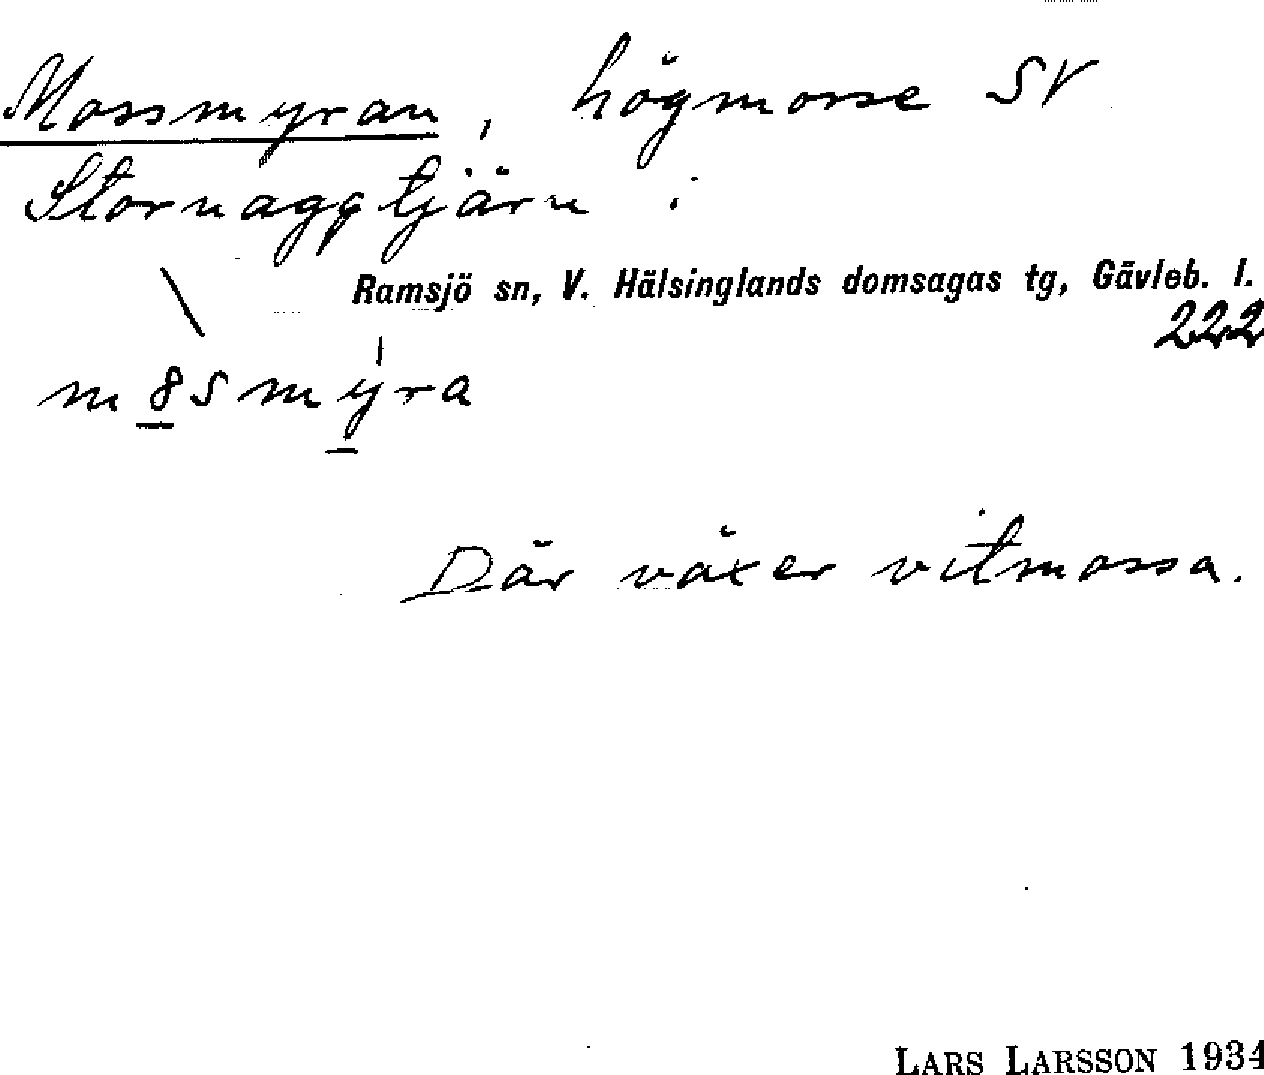 Mossmyran, högmosse SV
Stornaggtjärn i
Ramsjö sn, V. Hälsinglands domsagas tg, Gävleb. l.
222
m8smyra
Där växer vitmossa.
LARS LARSSON 1934